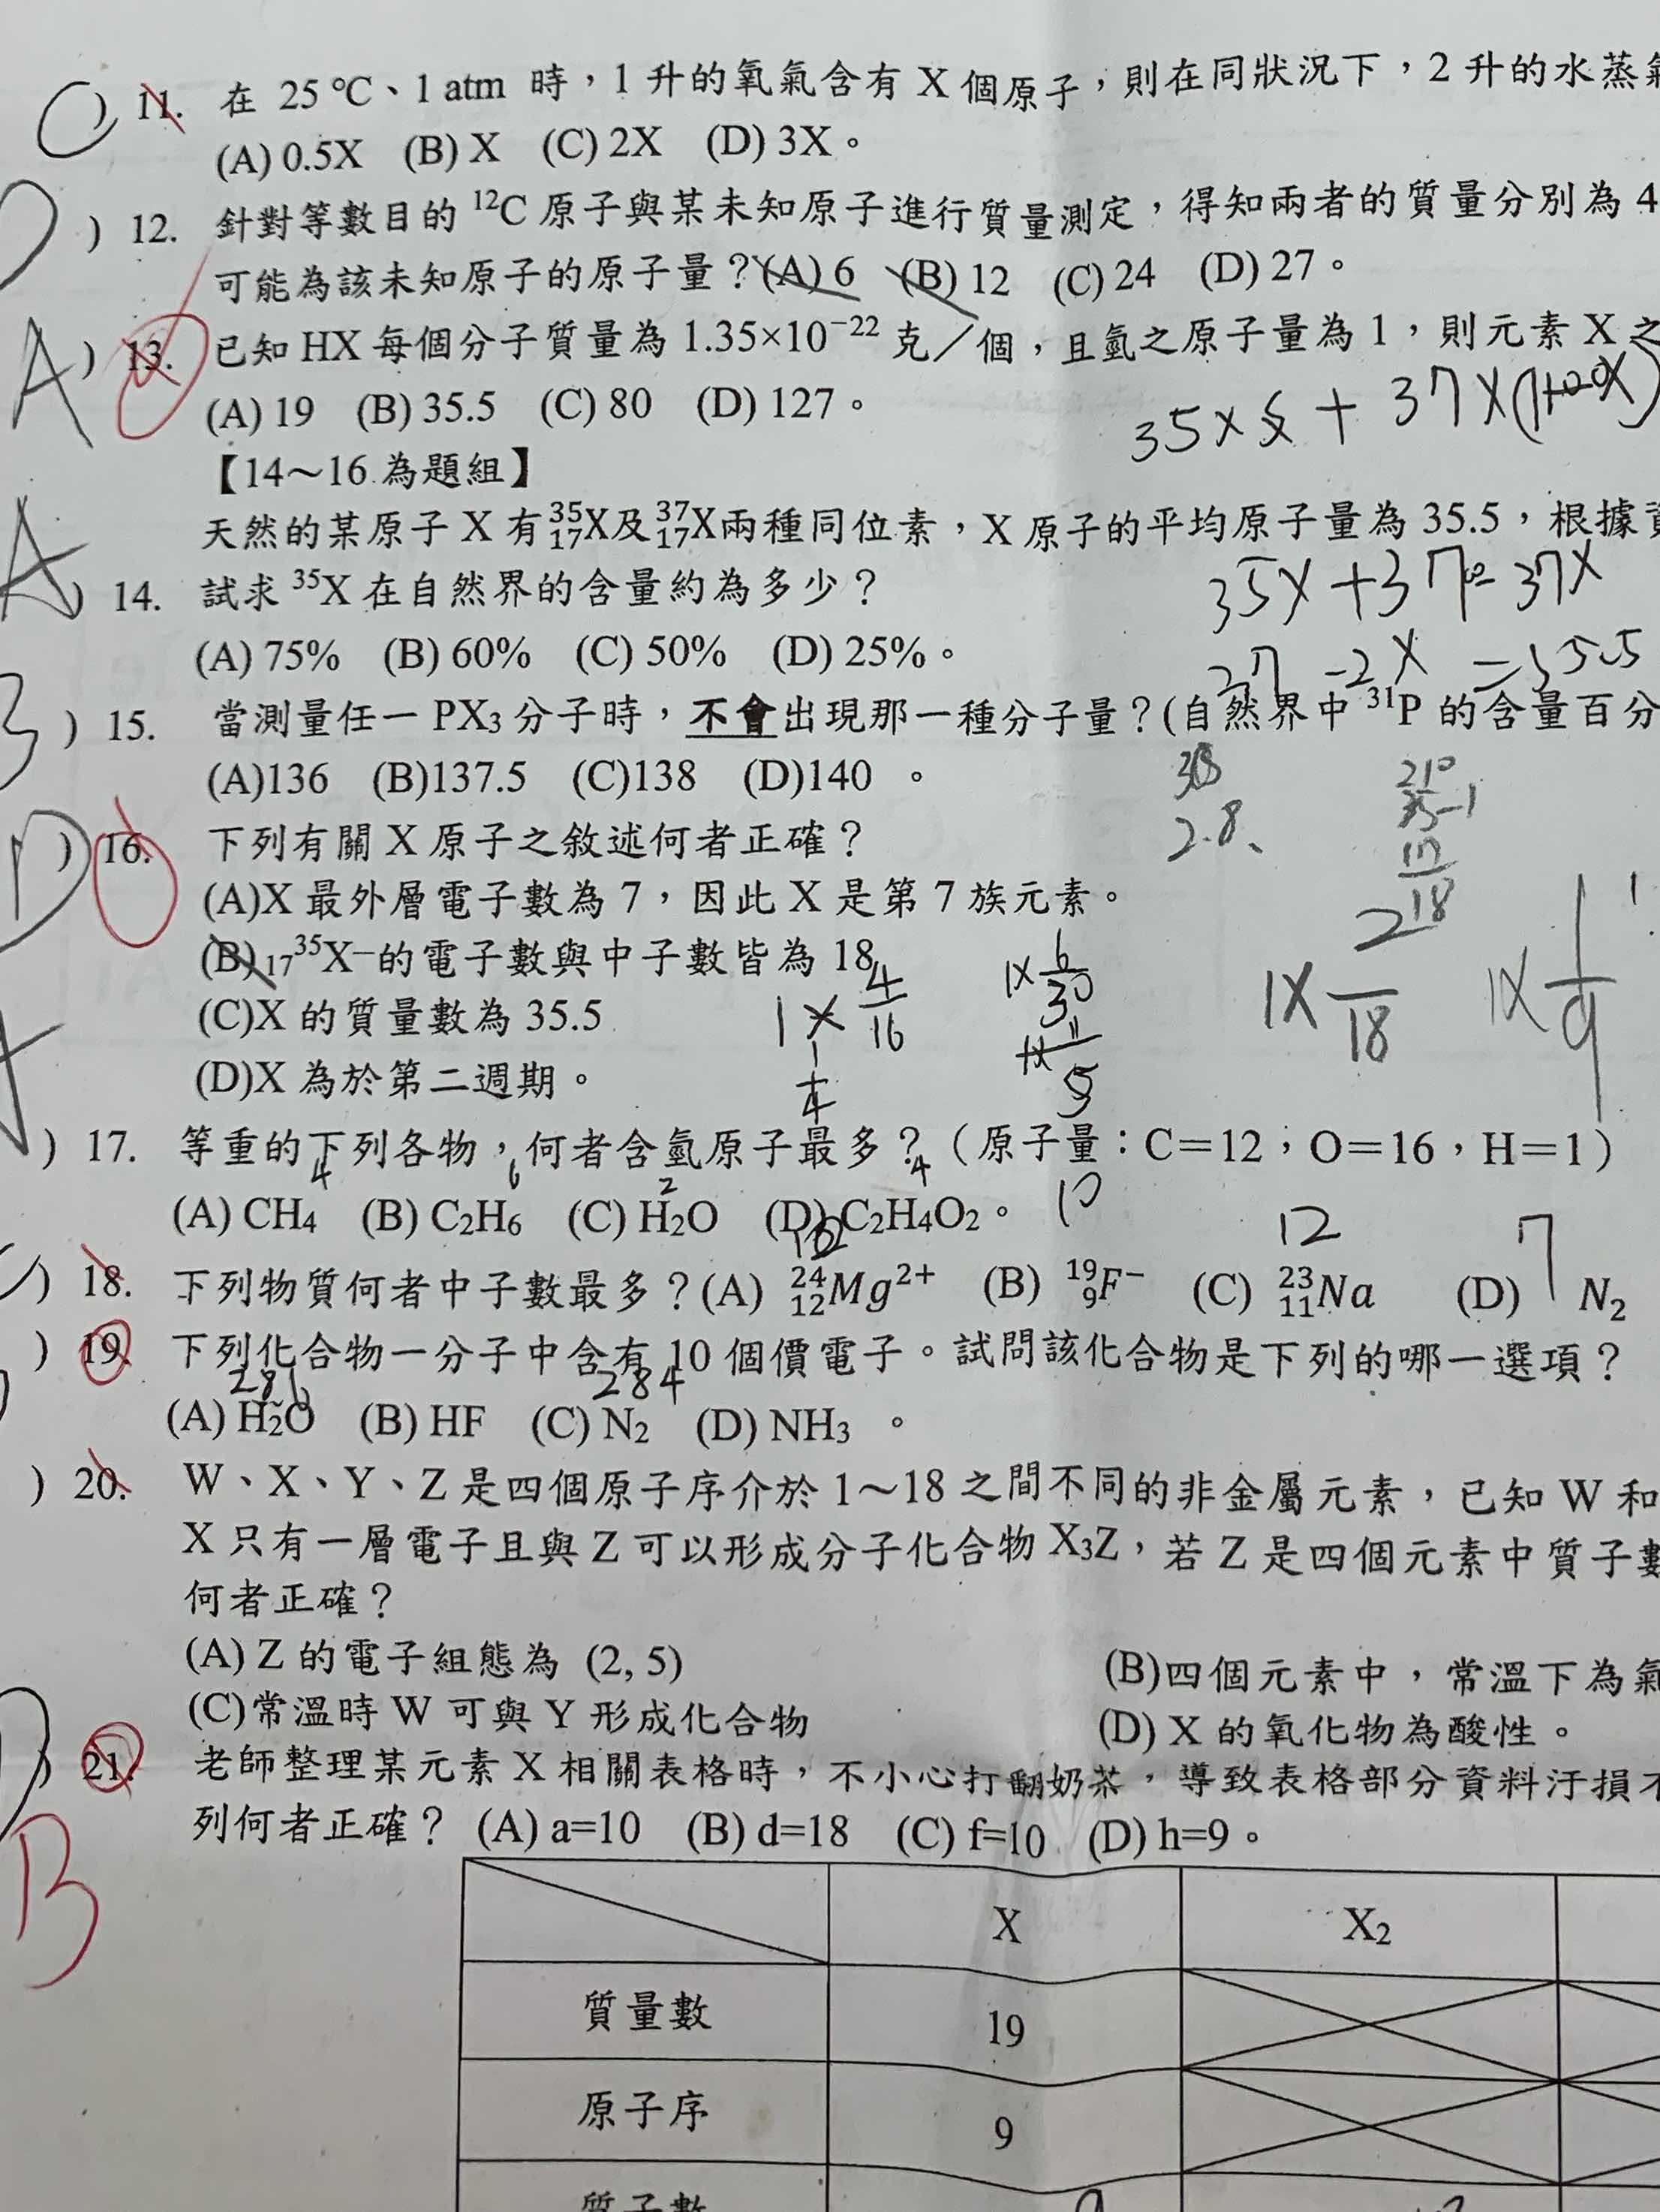 11. 在 25 ℃、1 atm 時，1 升的氧氣含有 X 個原子，則在同狀況下，2 升的水蒸氣
(A) 0.5X (B) X (C) 2X (D) 3X。
D ) 12. 針對等數目的 ¹²C 原子與某未知原子進行質量測定，得知兩者的質量分別為 4
可能為該未知原子的原子量？(A) 6 (B) 12 (C) 24 (D) 27。
A ) 13. 已知 HX 每個分子質量為 1.35×10⁻²² 克／個，且氫之原子量為 1，則元素 X 之
(A) 19 (B) 35.5 (C) 80 (D) 127。
35×
+ 37×
【14～16 為題組】
天然的某原子 X 有³⁵₁₇X及³⁷₁₇X兩種同位素，X 原子的平均原子量為 35.5，根據
A ) 14. 試求 ³⁵X 在自然界的含量約為多少？
35X +37 - 37X
(A) 75% (B) 60% (C) 50% (D) 25%。
37 -2X =35.5
B ) 15. 當測量任一 PX₃ 分子時，不會出現那一種分子量？(自然界中 ³¹P 的含量百分
(A)136 (B)137.5 (C)138 (D)140 。
D ) 16. 下列有關 X 原子之敘述何者正確？
2.8、
18
(A)X 最外層電子數為 7，因此 X 是第 7 族元素。
(B)₁₇³⁵X−的電子數與中子數皆為 18
1× 4/16
1× 6/30
1× 2/18
1× 1/9
(C)X 的質量數為 35.5
1/4
5
(D)X 為於第二週期。
) 17. 等重的下列各物，何者含氫原子最多？（原子量：C＝12；O＝16，H＝1）
4 6 2 4
(A) CH₄ (B) C₂H₆ (C) H₂O (D) C₂H₄O₂。
10 12 7
) 18. 下列物質何者中子數最多？(A) ²⁴₁₂Mg²⁺ (B) ¹⁹₉F⁻ (C) ²³₁₁Na (D) N₂
) 19. 下列化合物一分子中含有 10 個價電子。試問該化合物是下列的哪一選項？
286 284
(A) H₂O (B) HF (C) N₂ (D) NH₃ 。
) 20. W、X、Y、Z 是四個原子序介於 1～18 之間不同的非金屬元素，已知 W 和
X 只有一層電子且與 Z 可以形成分子化合物 X₃Z，若 Z 是四個元素中質子數
何者正確？
(A) Z 的電子組態為 (2, 5) (B)四個元素中，常溫下為氣
(C)常溫時 W 可與 Y 形成化合物 (D) X 的氧化物為酸性。
) 21. 老師整理某元素 X 相關表格時，不小心打翻奶茶，導致表格部分資料汙損不
B
列何者正確？ (A) a=10 (B) d=18 (C) f=10 (D) h=9。
X X₂
質量數 19
原子序 9
質子數 9